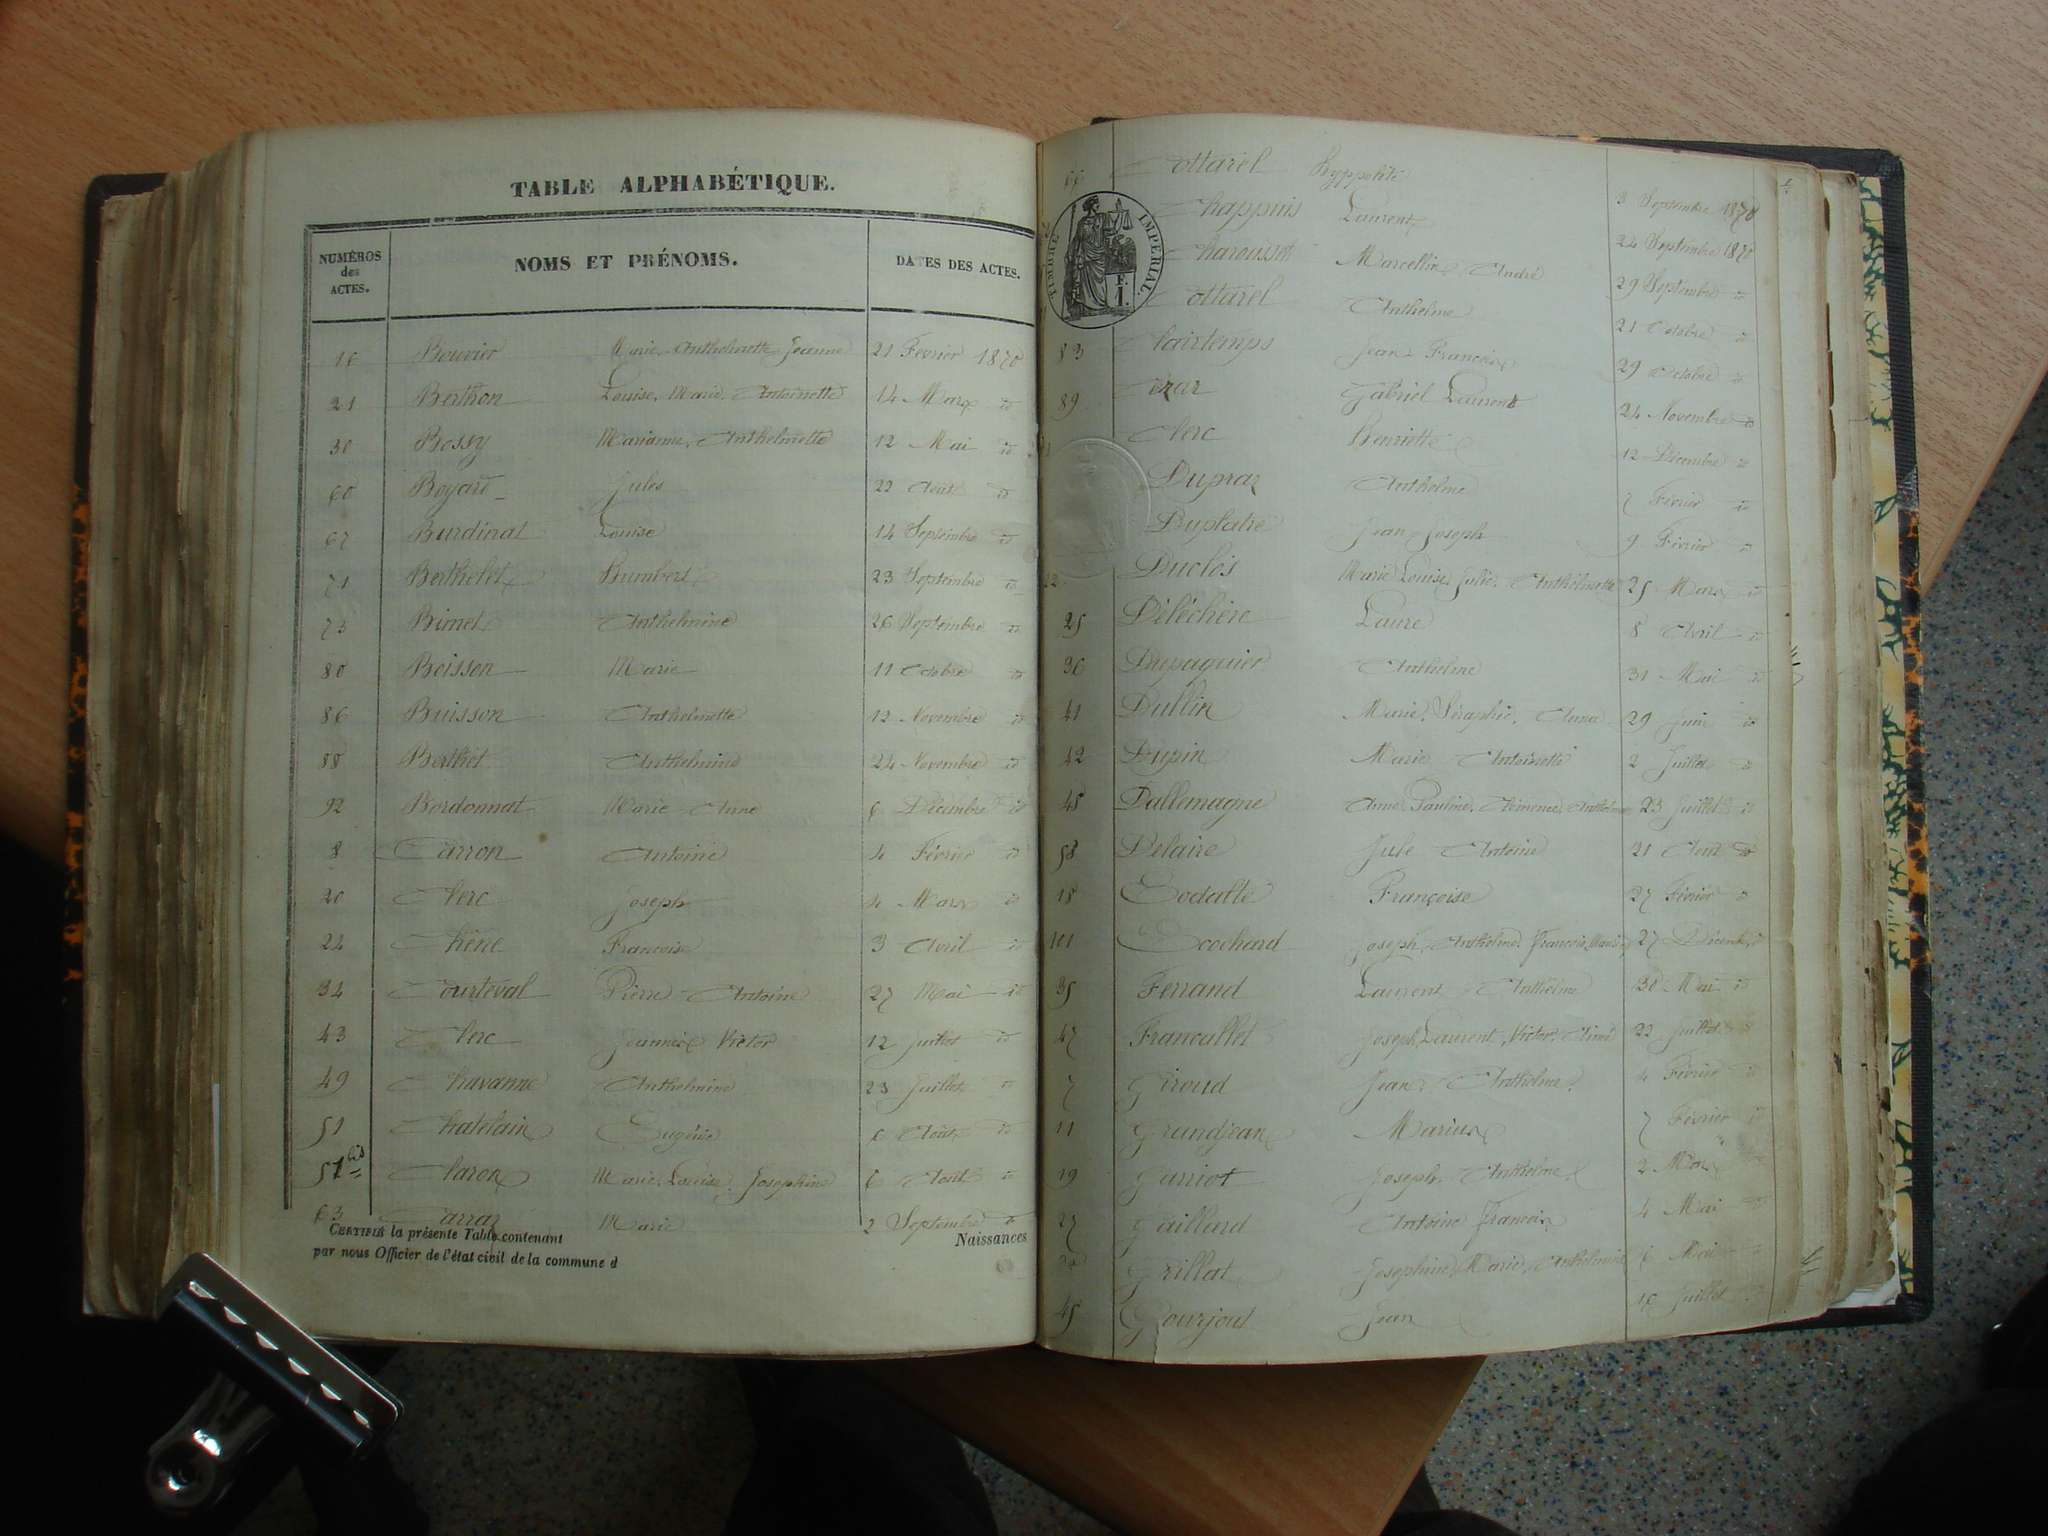 TABLE ALPHABÉTIQUE.
NUMÉROS des ACTES. NOMS ET PRÉNOMS. DATES DES ACTES.
16 Bouvier Marie Anthelmette Jeanne 21 Février 1870
21 Berthon Louise, Marie, Antoinette 14 Mars id
30 Bossy Marianne, Anthelmette 12 Mai id
60 Boyard Jules 22 Août id
67 Burdinat Louise 14 Septembre id
71 Berthelet Humbert 23 Septembre id
73 Bimet Anthelmine 26 Septembre id
80 Boisson Marie 11 Octobre id
86 Buisson Anthelmette 12 Novembre id
88 Berthet Anthelmine 24 Novembre id
92 Bordonnat Marie Anne 6 Décembre id
8 Carron Antoine 4 Février id
20 Clerc Joseph 4 Mars id
24 Chêne François 3 Avril id
34 Courteval Pierre Antoine 27 Mai id
43 Clerc Victor 12 Juillet id
49 Chavanne Anthelmine 23 Juillet id
51 Chatelain Eugénie 6 Août id
51 bis Claron Marie, Louise, Josephine 6 Août id
63 Carraz Marie 2 Septembre id
CERTIFIÉ la présente Table contenant Naissances
par nous Officier de l'état civil de la commune d
Cottarel Hyppolite 3 Septembre 1870
Chappuis Laurent 24 Septembre 1870
Charousset Marcellin André 29 Septembre id
Cottarel Anthelme 21 Octobre id
83 Clairtemps Jean François 29 Octobre id
89 Cizar Gabriel Laurent 24 Novembre id
Clerc Henriette 12 Décembre id
Dupraz Anthelme 7 Février id
Duplatre Jean Joseph 9 Février id
22 Duclos Marie Louise Julie Anthelmette 25 Mars id
25 Déléchère Laure 8 Avril id
36 Dupaquier Anthelme 31 Mai id
41 Dullin Marie, Séraphie, Anna 29 Juin id
42 Dupin Marie Antoinette 2 Juillet id
48 Dallemagne Anne, Pauline, Clémence, 23 Juillet id
58 Delaire Jule Antoine 21 Août id
18 Françoise 27 Février id
101 Ecochard Joseph, Anthelme, François 27 Décembre
35 Ferrand Laurent Anthelme 30 Mai id
47 Francallet Joseph, Laurent, Victor, Aimé 22 Juillet
7 Giroud Jean Anthelme 4 Février id
11 Grandjean Marius 7 Février id
19 Garriot Joseph Anthelme 2 Mars
27 Gaillard Antoine François 4 Mai
Grillat Josephine, Marie, Anthelmine 6 Mai
45 Gourjout Jean 16 Juillet
TIMBRE IMPÉRIAL.
F.
1.